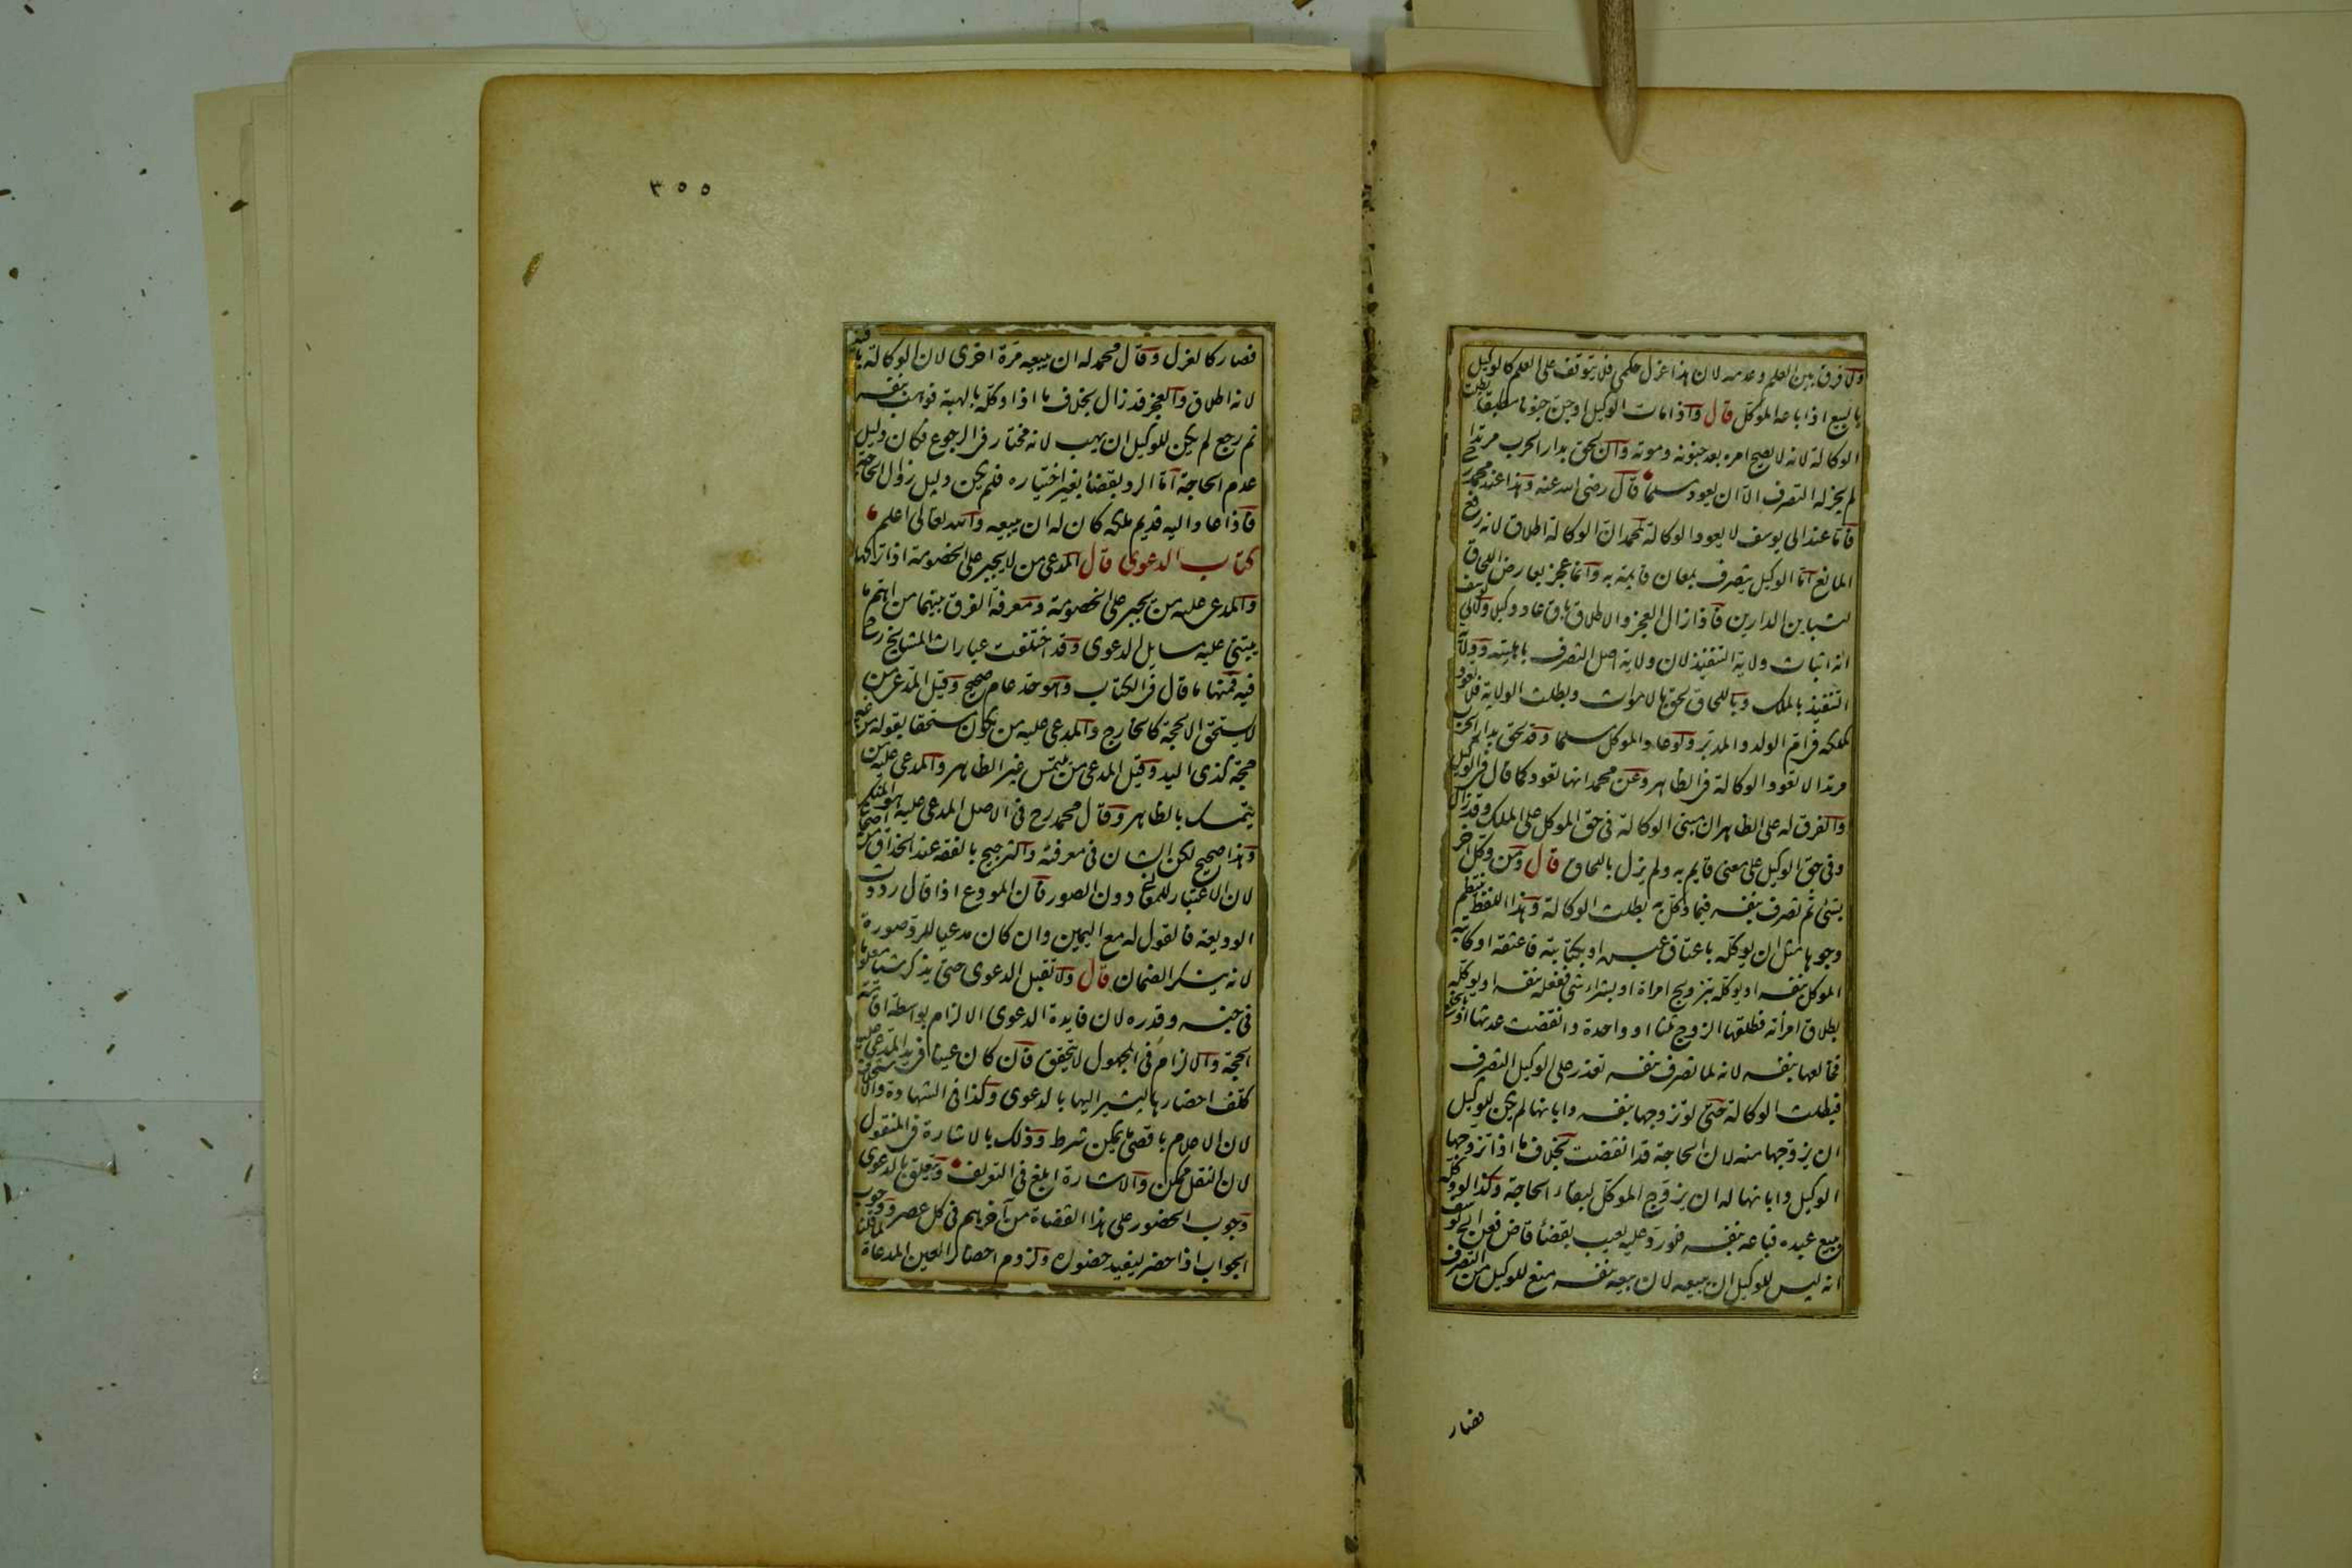 ولا فرق بين العلم وعدمه لان هذا عزل حكمي فلا يتوقف على العلم كالوكيل
بالبيع اذا باعه الموكل قال واذا مات الوكيل او جن جنونا مطبقا بطلت
الوكالة لانه لا يصح امره بعد جنونه وموته وان لحق بدار الحرب مرتدا
لم يجز له التصرف الا ان يعود مسلما قال رضى الله عنه وهذا عند محمد رح
فاما عند ابى يوسف لا يعود الوكالة لمحمد ان الوكالة اطلاق لانه رفع
المانع اما الوكيل يتصرف بمعان قايمة به وانما عجز بعارض اللحاق
لتباين الدارين فاذا زال العجز والاطلاق باق عاد وكيلا ولابي يوسف
انه اثبات ولاية التنفيذ لان ولاية اصل التصرف باهليته وولاية
التنفيذ بالملك وباللحاق لحق بالاموات وبطلت الولاية فلا تعود
كملكه في ام الولد والمدبر ولو عاد الموكل مسلما وقد لحق بدار الحرب
مرتدا لا تعود الوكالة في الظاهر وعن محمد انها تعود كما قال في الوكيل
والفرق له على الظاهر ان مبنى الوكالة في حق الموكل على الملك وقد زال
وفى حق الوكيل على معنى قايم به ولم يزل باللحاق قال ومن وكل آخر
بشئ ثم تصرف بنفسه فيما وكل به بطلت الوكالة وهذا اللفظ ينتظم
وجوها مثل ان يوكله باعتاق عبده او بكتابته فاعتقه او كاتبه
الموكل بنفسه او يوكله بتزويج امراة او بشراء شى ففعله بنفسه او يوكله
بطلاق امرأته فطلقها الزوج ثلثا او واحدة وانقضت عدتها او بالخلع
فخالعها بنفسه لانه لما تصرف بنفسه تعذر على الوكيل التصرف
فبطلت الوكالة حتى لو تزوجها بنفسه وابانها لم يكن للوكيل
ان يزوجها منه لان الحاجة قد انقضت بخلاف ما اذا تزوجها
الوكيل وابانها له ان يزوج الموكل لبقاء الحاجة وكذا لو وكله
ببيع عبده فباعه بنفسه فلو رد عليه بعيب بقضاء قاض فعن ابى يوسف
انه ليس للوكيل ان يبيعه لان بيعه بنفسه منع للوكيل من التصرف
فصار
٣٥٥
فصار كالعزل وقال محمد له ان يبيعه مرة اخرى لان الوكالة باقية
لانه اطلاق والعجز قد زال بخلاف ما اذا وكله بالهبة فوهب بنفسه
ثم رجع لم يكن للوكيل ان يهب لانه مختار في الرجوع فكان دليل
عدم الحاجة اما الرد بقضاء بغير اختياره فلم يكن دليل زوال الحاجة
فاذا عاد اليه قديم ملكه كان له ان يبيعه والله تعالى اعلم
كتاب الدعوى قال المدعى من لا يجبر على الخصومة اذا تركها
والمدعى عليه من يجبر على الخصومة ومعرفة الفرق بينهما من اهم ما
يبتنى عليه مسايل الدعوى وقد اختلفت عبارات المشايخ رح
فيه فمنها ما قال في الكتاب وهو حد عام صحيح وقيل المدعى من
لا يستحق الا بحجة كالخارج والمدعى عليه من يكون مستحقا بقوله من غير
حجة كذى اليد وقيل المدعى من يلتمس غير الظاهر والمدعى عليه من
يتمسك بالظاهر وقال محمد رح فى الاصل المدعى عليه هو المنكر
وهذا صحيح لكن الشان فى معرفته والترجيح بالفقه عند الحذاق من اصحابنا
لان الاعتبار للمعانى دون الصور فان المودع اذا قال رددت
الوديعة فالقول له مع اليمين وان كان مدعيا للرد صورة
لانه ينكر الضمان قال ولا تقبل الدعوى حتى يذكر شيئا معلوما
فى جنسه وقدره لان فايدة الدعوى الالزام بواسطة اقامة
الحجة والالزام فى المجهول لا يتحقق فان كان عينا في يد المدعى عليه
كلف احضارها ليشير اليها بالدعوى وكذا فى الشهادة والاستحلاف
لان الاعلام باقصى ما يمكن شرط وذلك بالاشارة في المنقول
لان النقل ممكن والاشارة ابلغ فى التعريف ويتعلق بالدعوى
وجوب الحضور على هذا القضاة من آخرهم فى كل عصر ووجوب
الجواب اذا حضر ليفيد حضوره ولزوم احضار العين المدعاة لما قلنا